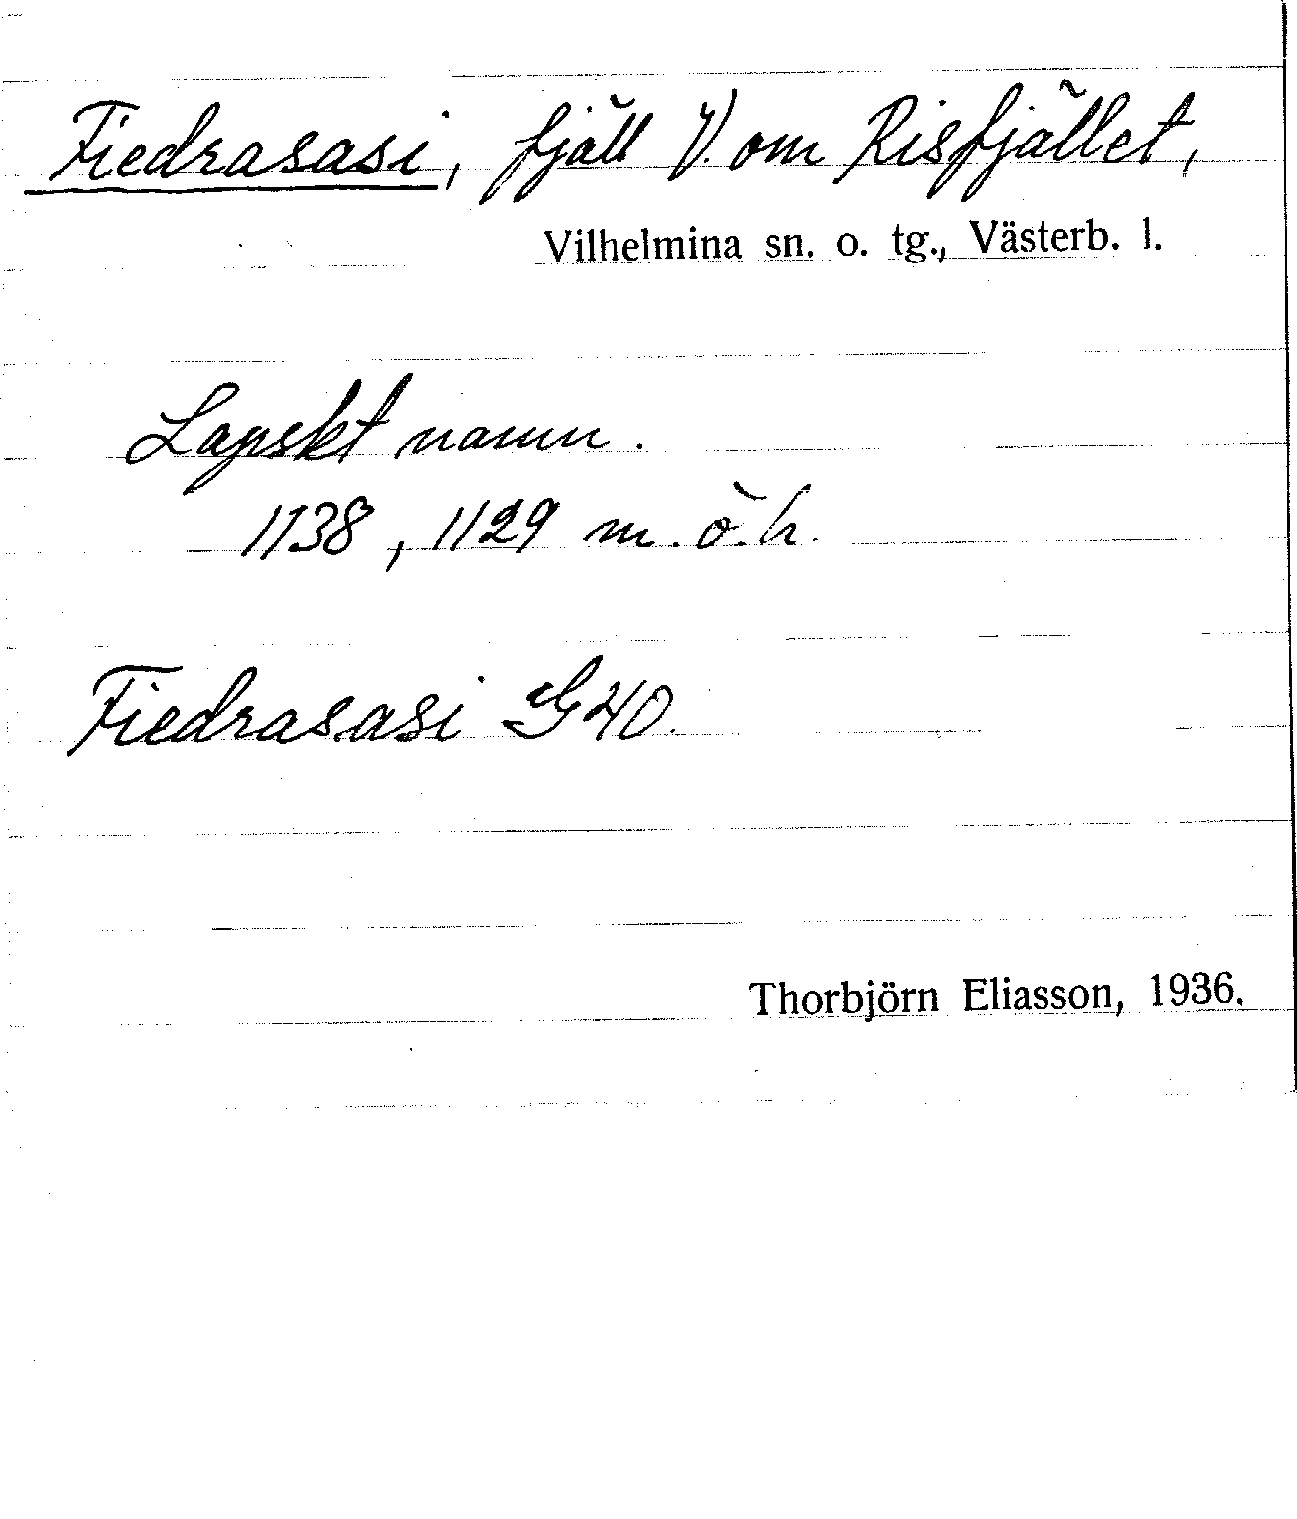 Fiedrasasi, fjäll V. om Risfjället,
Vilhelmina sn. o. tg., Västerb. l.
Lapskt namn.
1138, 1129 m. ö. h.
Fiedrasasi G40.
Thorbjörn Eliasson, 1936.